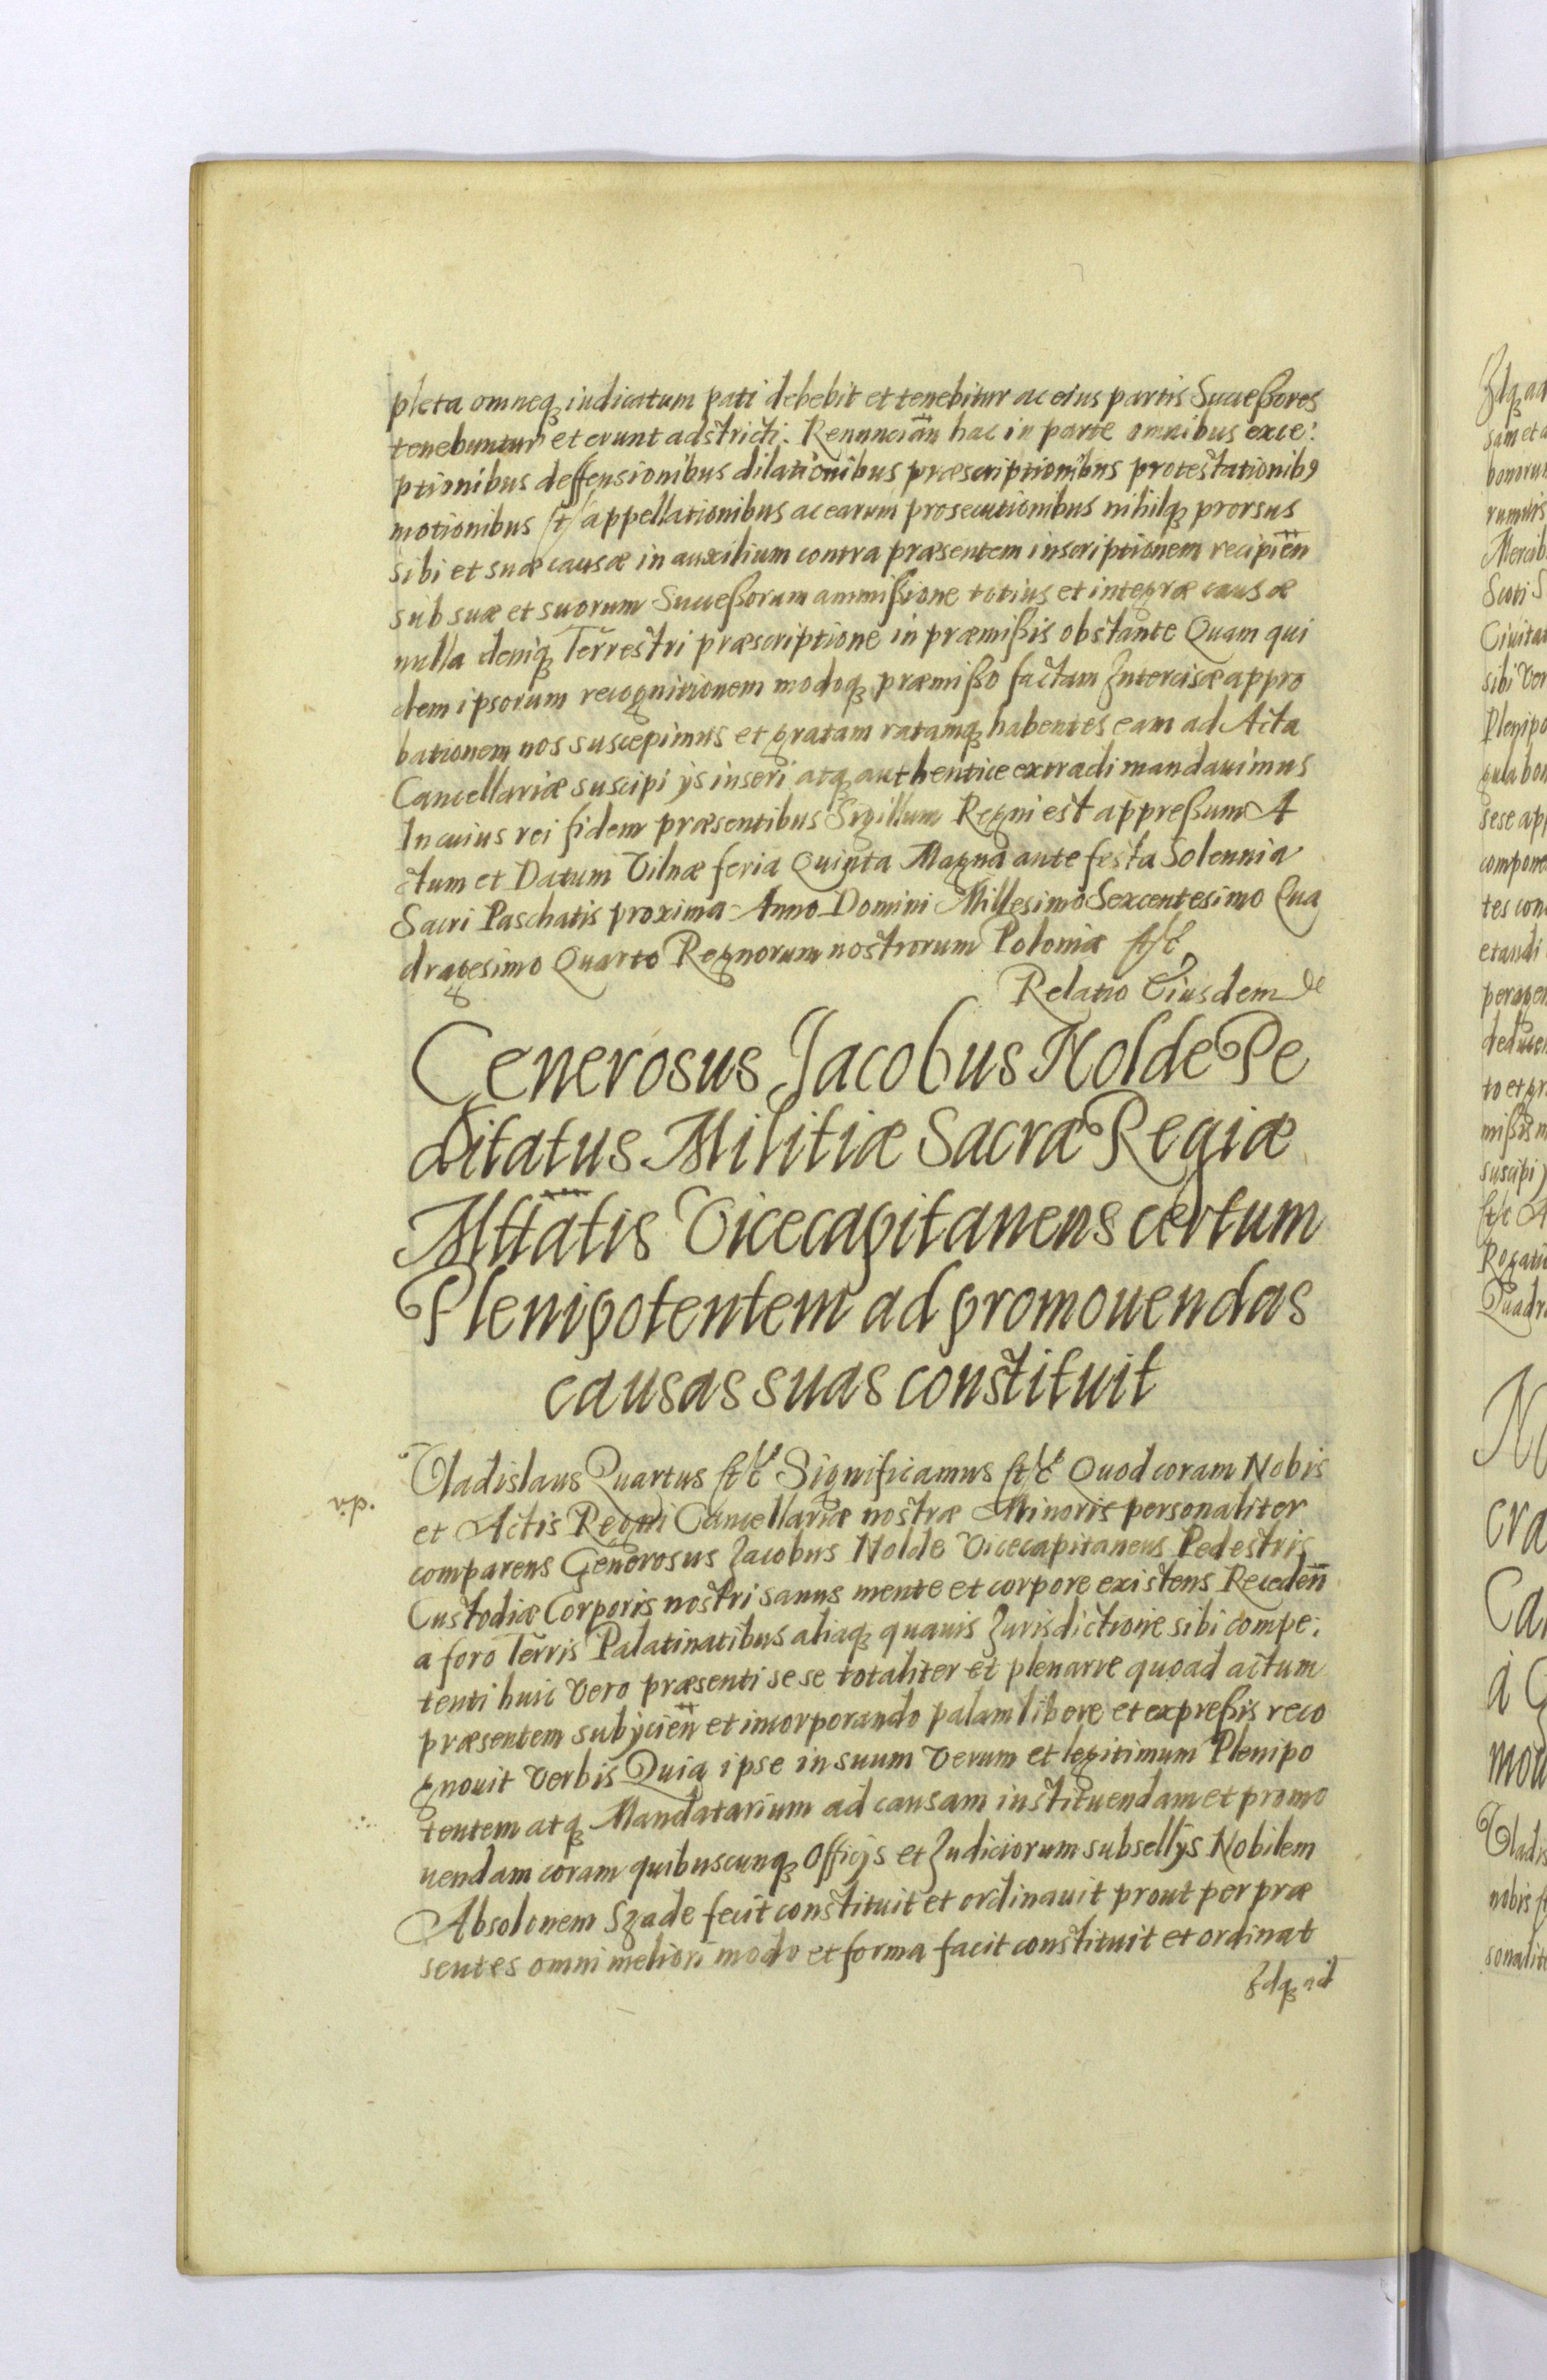 pleta omneq iudicatum pati debebit et tenebitur ac eius partis Sucteßores
tenebuntur et erunt adstricti. Renuncian̄ hac in parte omnibus exce:
ptionibus deffensionibus dilationibus præscriptionibus protestationibꝰ
motionibus et appellationibus ac earum prosecutionibus nihilq prorsus
sibi et suæ causæ in auxilium contra præsentem inscriptionem recipien̄
sub suæ et suorum Succeßorum ammißione totius et integræ causæ
nulla deniq Terrestri præscriptione in præmißis obstante Quam qui
dem ipsorum recognitionem modoq præmißo factam Intercisæ appro
bationem nos suscepimus et gratam ratamq habentes eam ad Acta
Cancellariæ suscipi ijs inseri atq authentice extradi mandauimus
In cuius rei fidem præsentibus Sigillum Regni est appreßum A
ctum et Datum Vilnæ feria Quinta Magna ante festa Solennia
Sacri Paschatis proxima Anno Domini Millesimo Sexcentesimo Qua
dragesimo Quarto Regnorum nostrorum Poloniæ etc
Relatio Eiusdem
Generosus Jacobus Nolde Pe
ditatus Militiæ Sacræ Regiæ
Mttatis Vicecapitaneus certum
Plenipotentem ad promouendas
causas suas constituit
Vladislaus Quartus etc Significamus etc Quod coram Nobis
et Actis Regni Cancellariæ nostræ Minoris personaliter
comparens Generosus Jacobus Nolde Vicecapitaneus Pedestris
Custodiæ Corporis nostri sanus mente et corpore existens Receden̄
a foro Terris Palatinatibus aliaq quauis Jurisdictione sibi compe:
tenti huic vero præsenti sese totaliter et plenarie quoad actum
præsentem subijcien̄ et incorporando palam libere et expreßis reco
gnouit verbis Quia ipse in suum verum et legitimum Plenipo
tentem atq Mandatarium ad causam instituendam et promo
uendam coram quibuscunq Officijs et Judiciorum subsellijs Nobilem
Absolonem Szade fecit constituit et ordinauit prout per præ
sentes omni meliori modo et forma facit constituit et ordinat
Idq ad